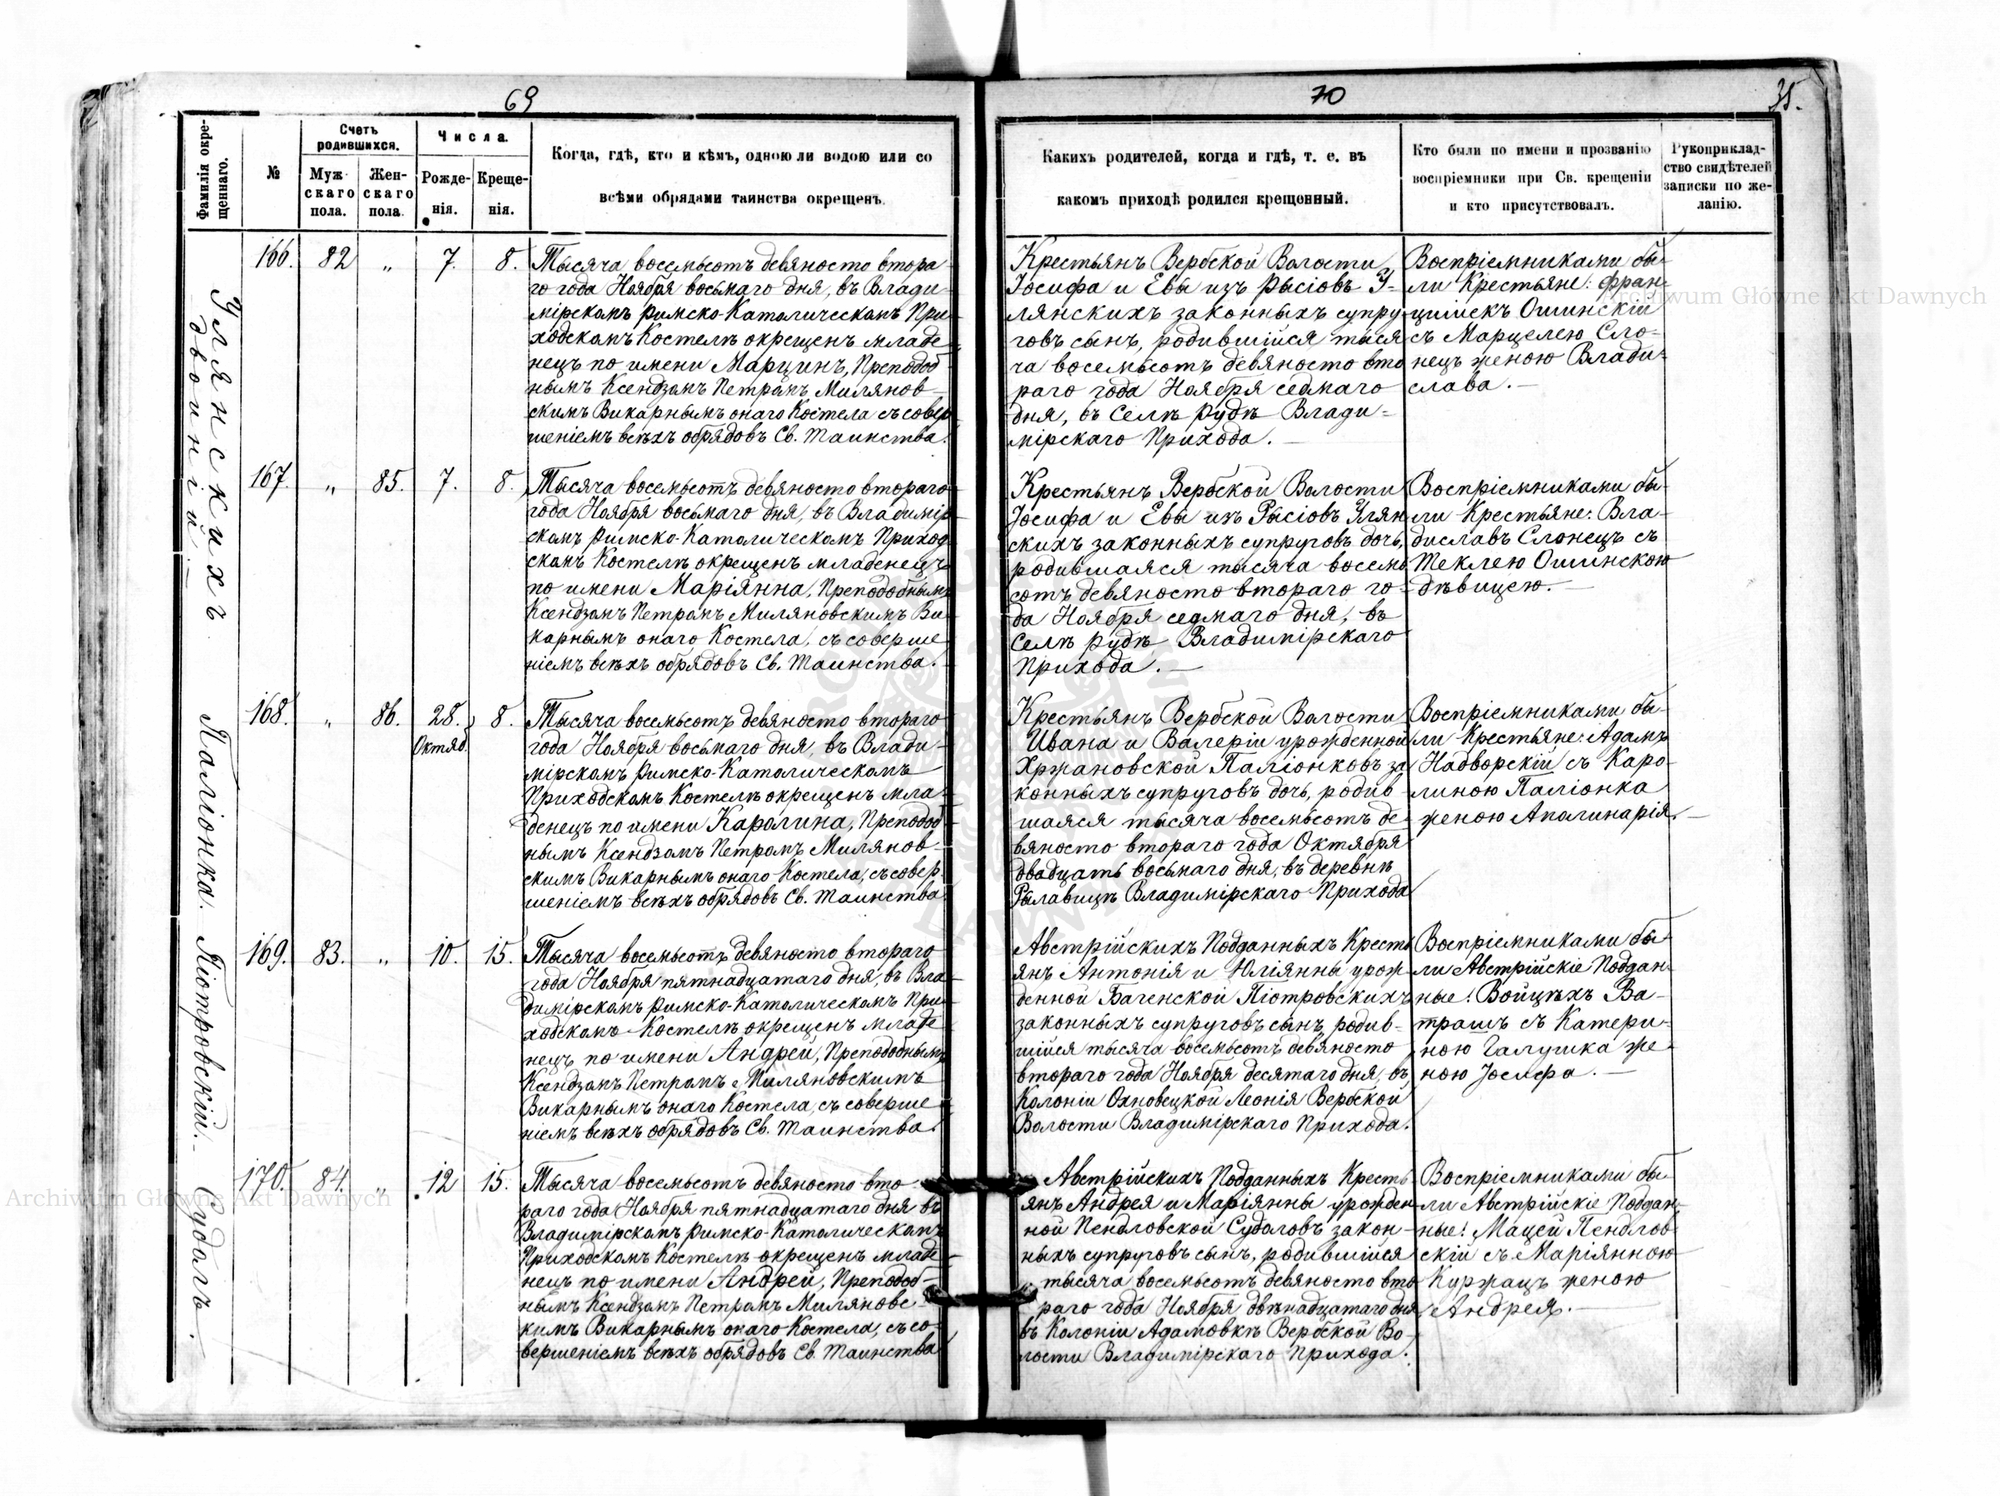 69
Фамилія окре-
щеннаго.
№
Счетъ
родившихся.
Муж
скаго
пола.
Жен-
скаго
пола.
Числа.
Рожде-
нія.
Креще-
нія.
Когда, гдѣ, кто и кѣмъ, одною ли водою или со
всѣми обрядами таинства окрещенъ.
Улянскихъ
двоинiй.
166. 82 „ 7. 8.
Тысяча восемьсотъ девяносто втора-
го года Ноября восьмаго дня, въ Влади-
мірскомъ Римско-Католическомъ При-
ходскомъ Костелѣ окрещенъ младе-
нецъ по имени Марцинъ, Преподоб-
нымъ Ксендзомъ Петромъ Миляпов-
скимъ Викарнымъ онаго Костела съ совер-
шеніемъ всѣхъ обрядовъ Св. Таинства.
167. „ 85. 7. 8.
Тысяча восемьсотъ девяносто втораго
года Ноября восьмаго дня, въ Владимір-
скомъ Римско-Католическомъ Приход-
скомъ Костелѣ окрещенъ младенецъ
по имени Маріянна, Преподобнымъ
Ксендзомъ Петромъ Миляновскимъ Ви-
карнымъ онаго Костела, съ соверше
ніемъ всѣхъ обрядовъ Св. Таинства.
Паліонка.
168. „ 86. 28. 8.
Октяб.
Тысяча восемьсотъ девяносто втораго
года Ноября восьмаго дня, въ Влади-
мірскомъ Римско-Католическомъ
Приходскомъ Костелѣ окрещенъ мла-
денецъ по имени Каролина, Преподоб-
нымъ Ксендзомъ Петромъ Милянов-
скимъ Викарнымъ онаго Костела, съ совер-
шеніемъ всѣхъ обрядовъ Св. Таинства.
Піотровскій.
169. 83. „ 10. 15.
Тысяча восемьсотъ девяносто втораго
года Ноября пятнадцатаго дня, въ Вла-
димірскомъ Римско-Католическомъ При-
ходскомъ Костелѣ окрещенъ младе
нецъ по имени Андрей, Преподобнымъ
Ксендзомъ Петромъ Миляновскимъ
Викарнымъ онаго Костела, съ соверше
ніемъ всѣхъ обрядовъ Св. Таинства.
Судолъ.
170. 84. „ 12 15.
Тысяча восемьсотъ девяносто вто-
раго года Ноября пятнадцатаго дня въ
Владимірскомъ Римско-Католическомъ
Приходскомъ Костелѣ окрещенъ младе-
нецъ по имени Андрей, Преподоб-
нымъ Ксендзомъ Петромъ Миляновс-
кимъ Викарнымъ онаго Костела, съ со-
вершеніемъ всѣхъ обрядовъ Св. Таинства
70
35.
Какихъ родителей, когда и гдѣ, т. е. въ
какомъ приходѣ родился крещенный.
Кто были по имени и прозванію
воспріемники при Св. крещеніи
и кто присутствовалъ.
Рукоприклад-
ство свидѣтелей
записки по же-
ланію.
Крестьянъ Вербской Волости
Іосифа и Евы изъ Рысіовъ У-
лянскихъ законныхъ супру-
говъ сынъ, родившійся тыся
ча восемьсотъ девяносто вто
раго года Ноября седмаго
дня, въ селѣ Рудѣ Влади-
мірскаго Прихода.
Воспріемниками бы-
ли Крестьяне: Фран-
цишекъ Ошинскій
съ Марцелею Сло-
нецъ женою Влади-
слава.
Крестьянъ Вербской Волости
Іосифа и Евы изъ Рысіовъ Улян
скихъ законныхъ супруговъ дочь,
родившаяся тысяча восемь
сотъ девяносто втораго го-
да Ноября седмаго дня, въ
селѣ Рудѣ Владимірскаго
Прихода.
Воспріемниками бы-
ли Крестьяне: Вла-
диславъ Слонецъ съ
Теклею Ошинскою
дѣвицею.
Крестьянъ Вербской Волости
Ивана и Валеріи урожденной
Хржановской Паліонковъ за
конныхъ супруговъ дочь, родив-
шаяся тысяча восемьсотъ де-
вяносто втораго года Октября
двадцать восьмаго дня, въ деревнѣ
Рылавицѣ Владимірскаго Прихода
Воспріемниками бы-
ли Крестьяне: Адамъ
Надворскій съ Каро-
линою Паліонка
женою Аполинарія.
Австрійскихъ Подданныхъ Кресть
янъ Антонія и Юліянны урож-
денной Багенской Піотровскихъ
законныхъ супруговъ сынъ, родив-
шійся тысяча восемьсотъ девяносто
втораго года Ноября десятаго дня, въ
Колоніи Охновецкой Леонія Вербской
Волости Владимірскаго Прихода.
Воспріемниками бы-
ли Австрійскіе Поддан-
ные: Войцѣхъ Ва-
трашъ съ Катери-
ною Галушка же-
ною Іосифа.
Австрійскихъ Подданныхъ Кресть
янъ Андрея и Маріянны урожден-
ной Пендловской Судоловъ закон-
ныхъ супруговъ сынъ, родившійся
тысяча восемьсотъ девяносто вто
раго года Ноября двѣнадцатаго дня
въ Колоніи Адамовкѣ Вербской Во-
лости Владимірскаго Прихода.
Воспріемниками бы-
ли Австрійскіе Поддан-
ные: Мацей Пендлов-
скій съ Маріянною
Куржацъ женою
Андрея.
Archiwum Główne Akt Dawnych
Archiwum Główne Akt Dawnych